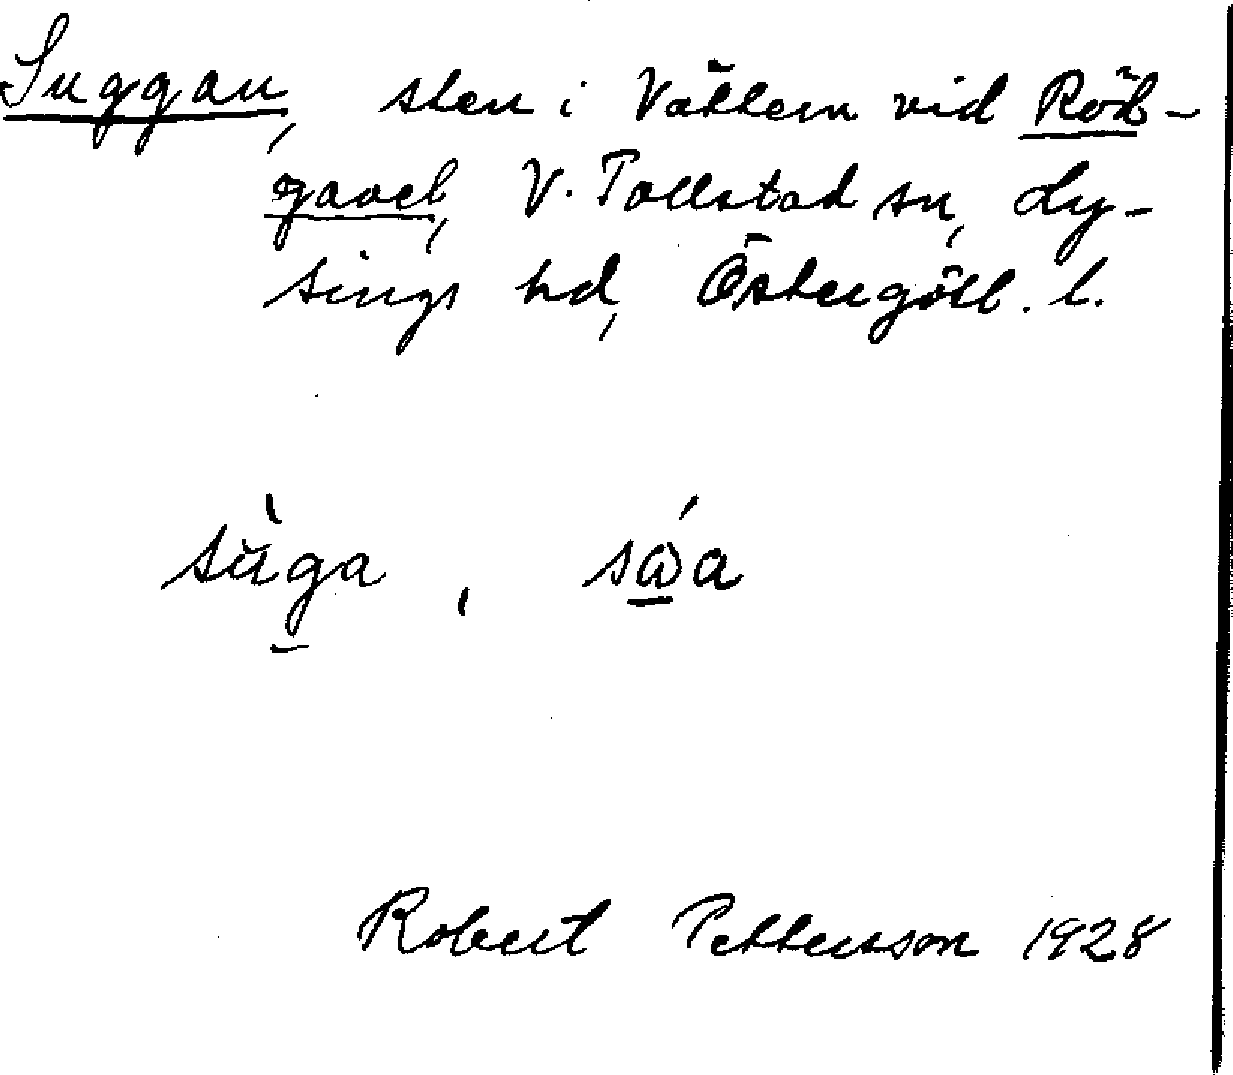 Suggan, sten i Vättern vid Röd-
gavel, V. Tollstad sn, Ly-
sings hd, Östergötl. l.
sùga, sώ̲a
Robert Pettersson 1928